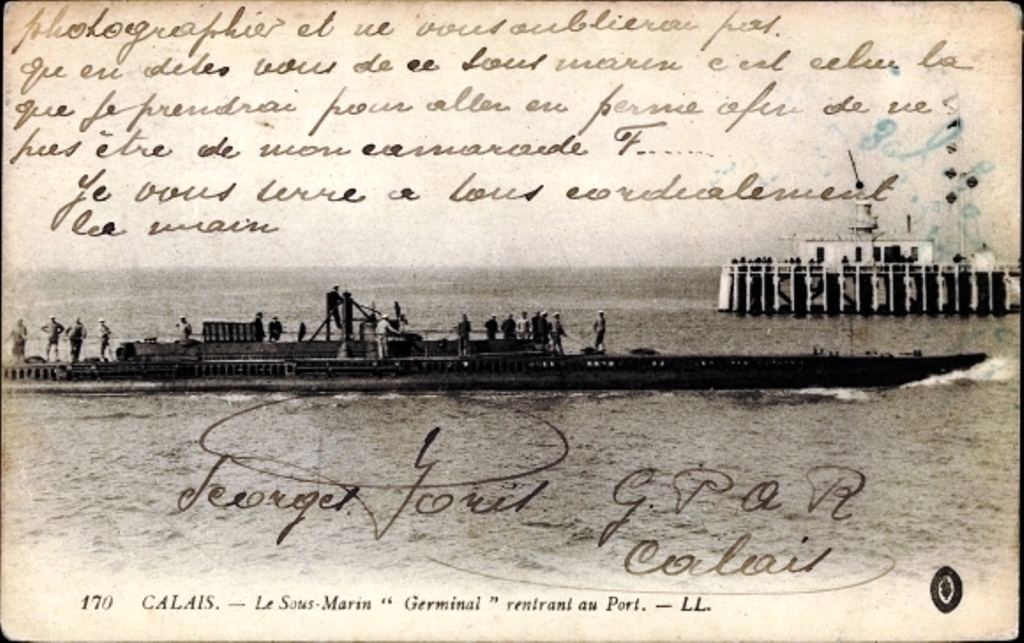 photographier et ne vous oublierai pas.
Qu en dites vous de ce sous marin c est celui la
que je prendrai pour aller en perme afin de ne
pas être de mon camarade F......
Je vous serre a tous cordialement
la main
Georges G P a R
Calais
170 CALAIS. — Le Sous-Marin “ Germinal ” rentrant au Port. — LL.